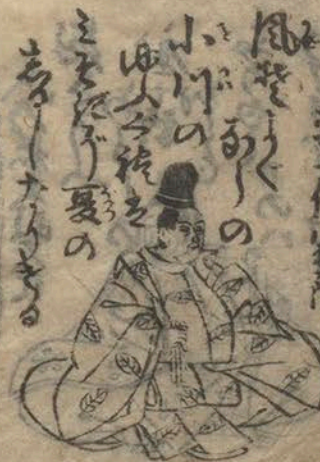 風そよぐ
ならの
小川の
ゆふぐれは
みそぎぞ夏の
しるしなりける